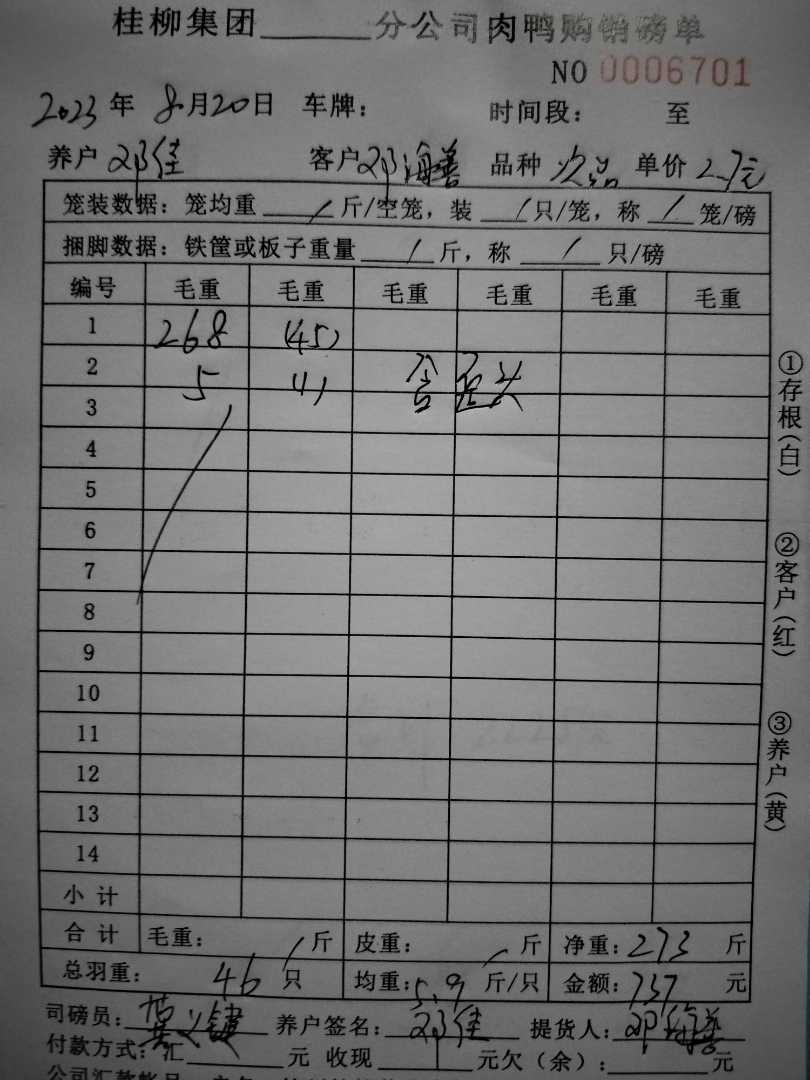 桂柳集团______分公司肉鸭购销磅单
NO 0006701
2023年 8月20日 车牌： 时间段： 至
养户 邓佳 客户 邓海善 品种 次品 单价 2.7元
笼装数据：笼均重 / 斤/空笼，装 / 只/笼，称 / 笼/磅
捆脚数据：铁筐或板子重量 / 斤，称 / 只/磅
编号 毛重 毛重 毛重 毛重 毛重 毛重
1 268 (45)
2 5 (1) 含歪头
3
4
5
6
7
8
9
10
11
12
13
14
小计
合计 毛重： / 斤 皮重： / 斤 净重：273 斤
总羽重： 46 只 均重：5.9 斤/只 金额：737 元
司磅员： 养户签名：邓佳 提货人：邓海善
付款方式：汇______元 收现______元欠（余）：______元
①存根（白）
②客户（红）
③养户（黄）